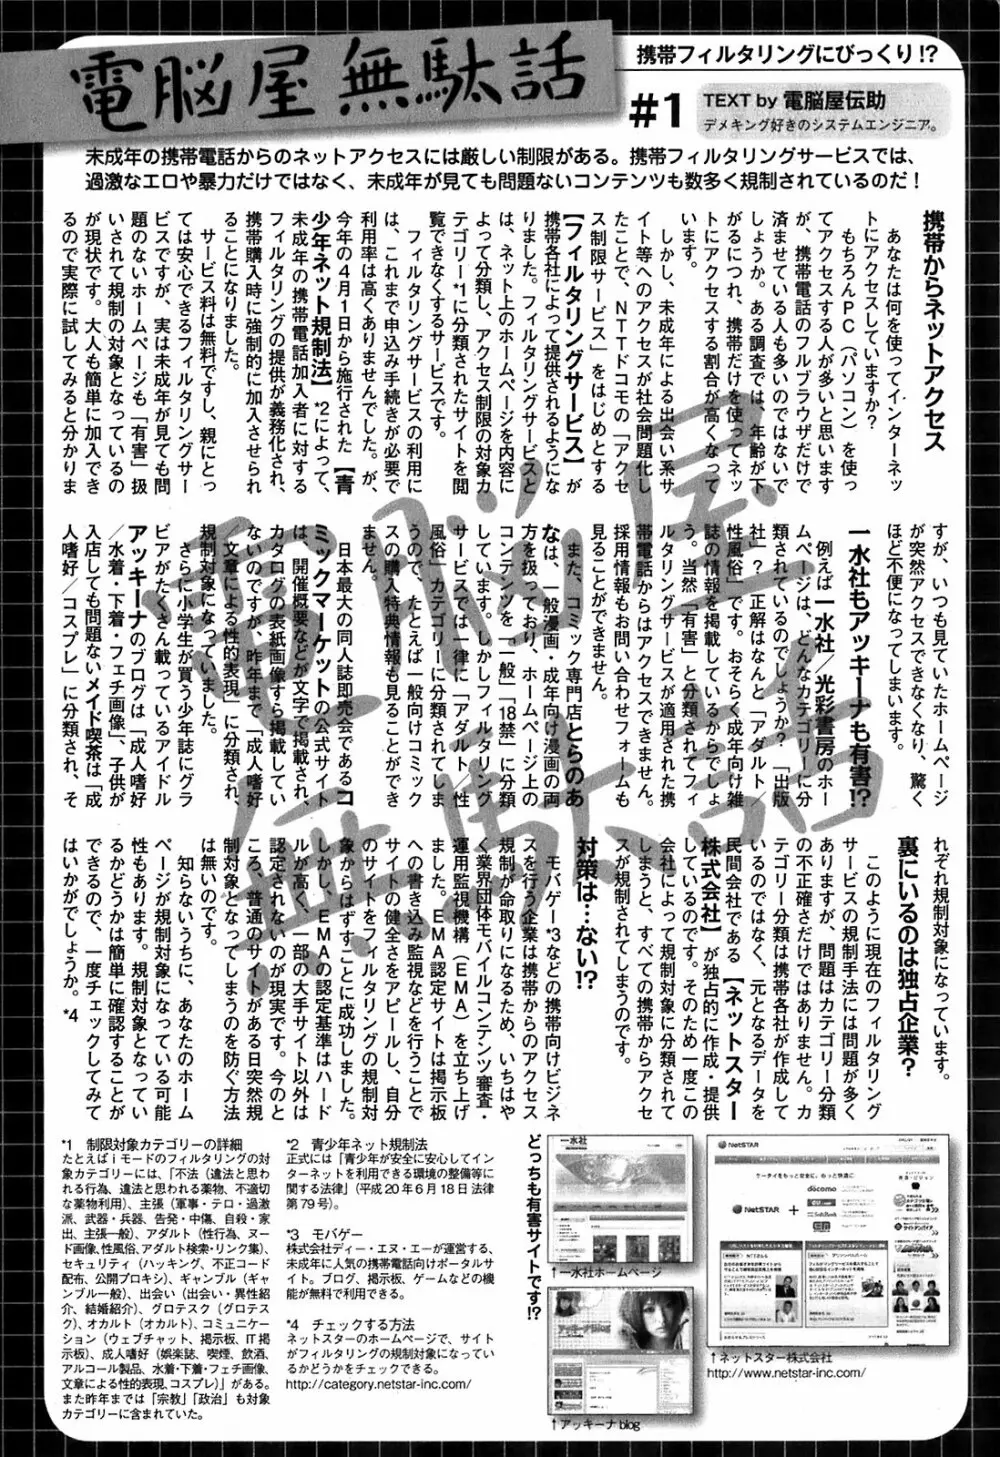 電脳屋 無駄話
携帯フィルタリングにびっくり!?
#1
TEXT by 電脳屋伝助
デメキング好きのシステムエンジニア。
未成年の携帯電話からのネットアクセスには厳しい制限がある。携帯フィルタリングサービスでは、
過激なエロや暴力だけではなく、未成年が見ても問題ないコンテンツも数多く規制されているのだ!
携帯からネットアクセス
あなたは何を使ってインターネッ
トにアクセスしていますか?
もちろんPC(パソコン)を使っ
てアクセスする人が多いと思います
が、携帯電話のフルブラウザだけで
済ませている人も多いのではないで
しょうか。ある調査では、年齢が下
がるにつれ、携帯だけを使ってネッ
トにアクセスする割合が高くなって
います。
しかし、未成年による出会い系サ
イト等へのアクセスが社会問題化し
たことで、NTTドコモの「アクセ
ス制限サービス」をはじめとする
【フィルタリングサービス】が
携帯各社によって提供されるようにな
りました。フィルタリングサービスと
は、ネット上のホームページを内容に
よって分類し、アクセス制限の対象カ
テゴリー*1に分類されたサイトを閲
覧できなくするサービスです。
フィルタリングサービスの利用に
は、これまで申込み手続きが必要で
利用率は高くありませんでした。が、
今年の4月1日から施行された【青
少年ネット規制法】*2によって、
未成年の携帯電話加入者に対する
フィルタリングの提供が義務化され、
携帯購入時に強制的に加入させられ
ることになりました。
サービス料は無料ですし、親にとっ
ては安心できるフィルタリングサー
ビスですが、実は未成年が見ても問
題のないホームページも「有害」扱
いされて規制の対象となっているの
が現状です。大人も簡単に加入でき
るので実際に試してみると分かりま
すが、いつも見ていたホームページ
が突然アクセスできなくなり、驚く
ほど不便になってしまいます。
一水社もアッキーナも有害!?
例えば一水社/光彩書房のホー
ムページは、どんなカテゴリーに分
類されているのでしょうか?「出版
社」?正解はなんと「アダルト/
性風俗」です。おそらく成年向け雑
誌の情報を掲載しているからでしょ
う。当然「有害」と分類されてフィ
ルタリングサービスが適用された携
帯電話からはアクセスできません。
採用情報もお問い合わせフォームも
見ることができません。
また、コミック専門店とらのあ
なは、一般漫画・成年向け漫画の両
方を扱っており、ホームページ上の
コンテンツを「一般」「18禁」に分類
しています。しかしフィルタリング
サービスでは一律に「アダルト/性
風俗」カテゴリーに分類されてしま
うので、たとえば一般向けコミック
スの購入特典情報も見ることができ
ません。
日本最大の同人誌即売会であるコ
ミックマーケットの公式サイト
は、開催概要などが文字で掲載され、
カタログの表紙画像すら掲載してい
ないのですが、昨年まで「成人嗜好
/文章による性的表現」に分類され、
規制対象になっていました。
さらに小学生が買う少年誌にグラ
ビアがたくさん載っているアイドル
アッキーナのブログは「成人嗜好
/水着・下着・フェチ画像」、子供が
入店しても問題ないメイド喫茶は「成
人嗜好/コスプレ」に分類され、そ
れぞれ規制対象になっています。
裏にいるのは独占企業?
このように現在のフィルタリング
サービスの規制手法には問題が多く
ありますが、問題はカテゴリー分類
の不正確さだけではありません。カ
テゴリー分類は携帯各社が作成して
いるのではなく、元となるデータを
民間会社である【ネットスター
株式会社】が独占的に作成・提供
しているのです。そのため一度この
会社によって規制対象に分類されて
しまうと、すべての携帯からアクセ
スが規制されてしまうのです。
対策は…ない!?
モバゲー*3などの携帯向けビジネ
スを行う企業は携帯からのアクセス
規制が命取りになるため、いちはや
く業界団体モバイルコンテンツ審査・
運用監視機構(EMA)を立ち上げ
ました。EMA認定サイトは掲示板
への書き込み監視などを行うことで
サイトの健全さをアピールし、自分
のサイトをフィルタリングの規制対
象からはずすことに成功しました。
しかし、EMAの認定基準はハード
ルが高く、一部の大手サイト以外は
認定されないのが現実です。今のと
ころ、普通のサイトがある日突然規
制対象となってしまうのを防ぐ方法
は無いのです。
知らないうちに、あなたのホーム
ページが規制対象になっている可能
性もあります。規制対象となってい
るかどうかは簡単に確認することが
できるので、一度チェックしてみて
はいかがでしょうか。*4
*1 制限対象カテゴリーの詳細
たとえばiモードのフィルタリングの対
象カテゴリーには、「不法(違法と思わ
れる行為、違法と思われる薬物、不適切
な薬物利用)、主張(軍事・テロ・過激
派、武器・兵器、告発・中傷、自殺・家
出、主張一般)、アダルト(性行為、ヌー
ド画像、性風俗、アダルト検索・リンク集)、
セキュリティ(ハッキング、不正コード
配布、公開プロキシ)、ギャンブル(ギャ
ンブル一般)、出会い(出会い・異性紹
介、結婚紹介)、グロテスク(グロテス
ク)、オカルト(オカルト)、コミュニケー
ション(ウェブチャット、掲示板、IT掲
示板)、成人嗜好(娯楽誌、喫煙、飲酒、
アルコール製品、水着・下着・フェチ画像、
文章による性的表現、コスプレ)」がある。
また昨年までは「宗教」「政治」も対象
カテゴリーに含まれていた。
*2 青少年ネット規制法
正式には「青少年が安全に安心してイン
ターネットを利用できる環境の整備等に
関する法律」(平成20年6月18日法律
第79号)。
*3 モバゲー
株式会社ディー・エヌ・エーが運営する、
未成年に人気の携帯電話向けポータルサ
イト。ブログ、掲示板、ゲームなどの機
能が無料で利用できる。
*4 チェックする方法
ネットスターのホームページで、サイト
がフィルタリングの規制対象になってい
るかどうかをチェックできる。
http://category.netstar-inc.com/
どっちも有害サイトです!?
一水社
↑一水社ホームページ
↑アッキーナblog
NetSTAR
ケータイをもっと安全に、もっと快適に
docomo
NetSTAR
+
↑ネットスター株式会社
http://www.netstar-inc.com/
電脳屋
無駄話